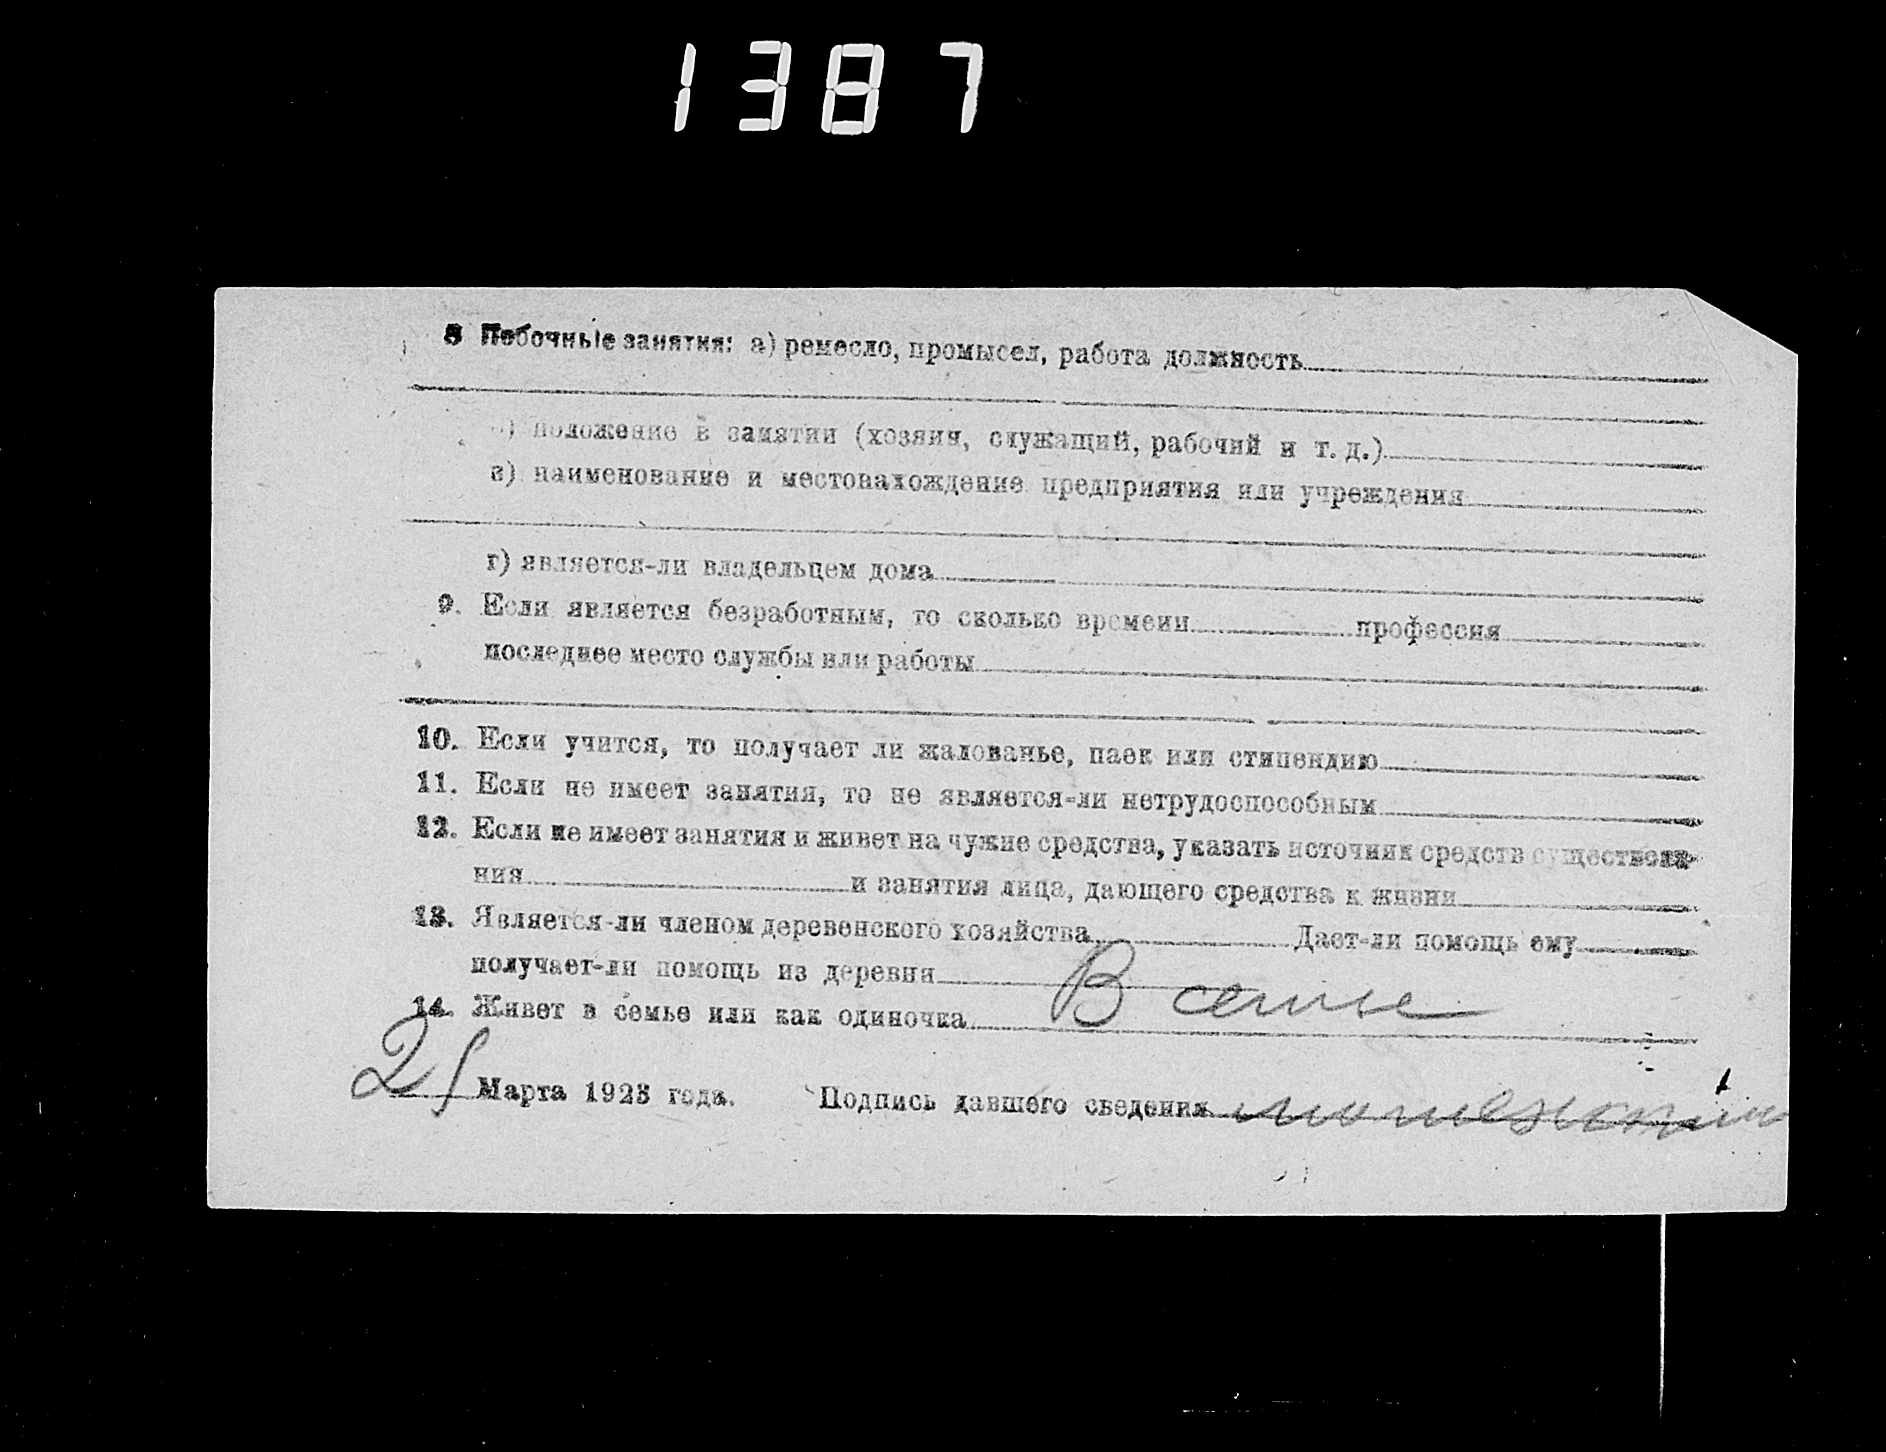 1387
8 Побочные занятия: а) ремесло, промысел, работа должность
б) положение в занятии (хозяин, служащий, рабочий и т. д.)
в) наименование и местонахождение предприятия или учреждения
г) является-ли владельцем дома
9. Если является безработным, то сколько времени профессия
последнее место службы или работы
10. Если учится, то получает ли жалованье, паек или стипендию
11. Если не имеет занятия, то не является-ли нетрудоспособным
12. Если не имеет занятия и живет на чужие средства, указать источник средств существова-
ния и занятия лица, дающего средства к жизни
13. Является-ли членом деревенского хозяйства Дает-ли помощь ему
получает-ли помощь из деревни
14. Живет в семье или как одиночка В семье
Марта 1923 года. Подпись давшего сведения